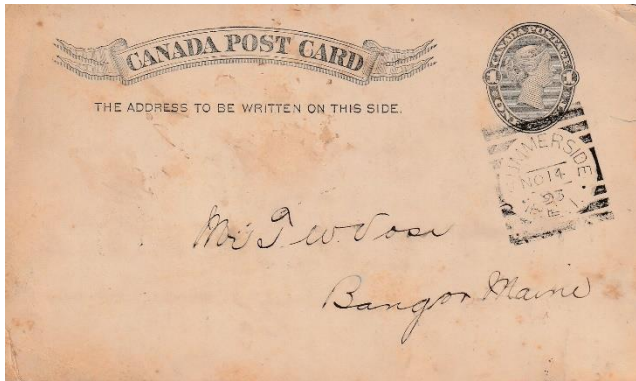 CANADA POST CARD
THE ADDRESS TO BE WRITTEN ON THIS SIDE.
CANADA POSTAGE
1 1
ONE CENT
SUMMERSIDE
NO 14
23
Mr T. W. Vose
Bangor Maine